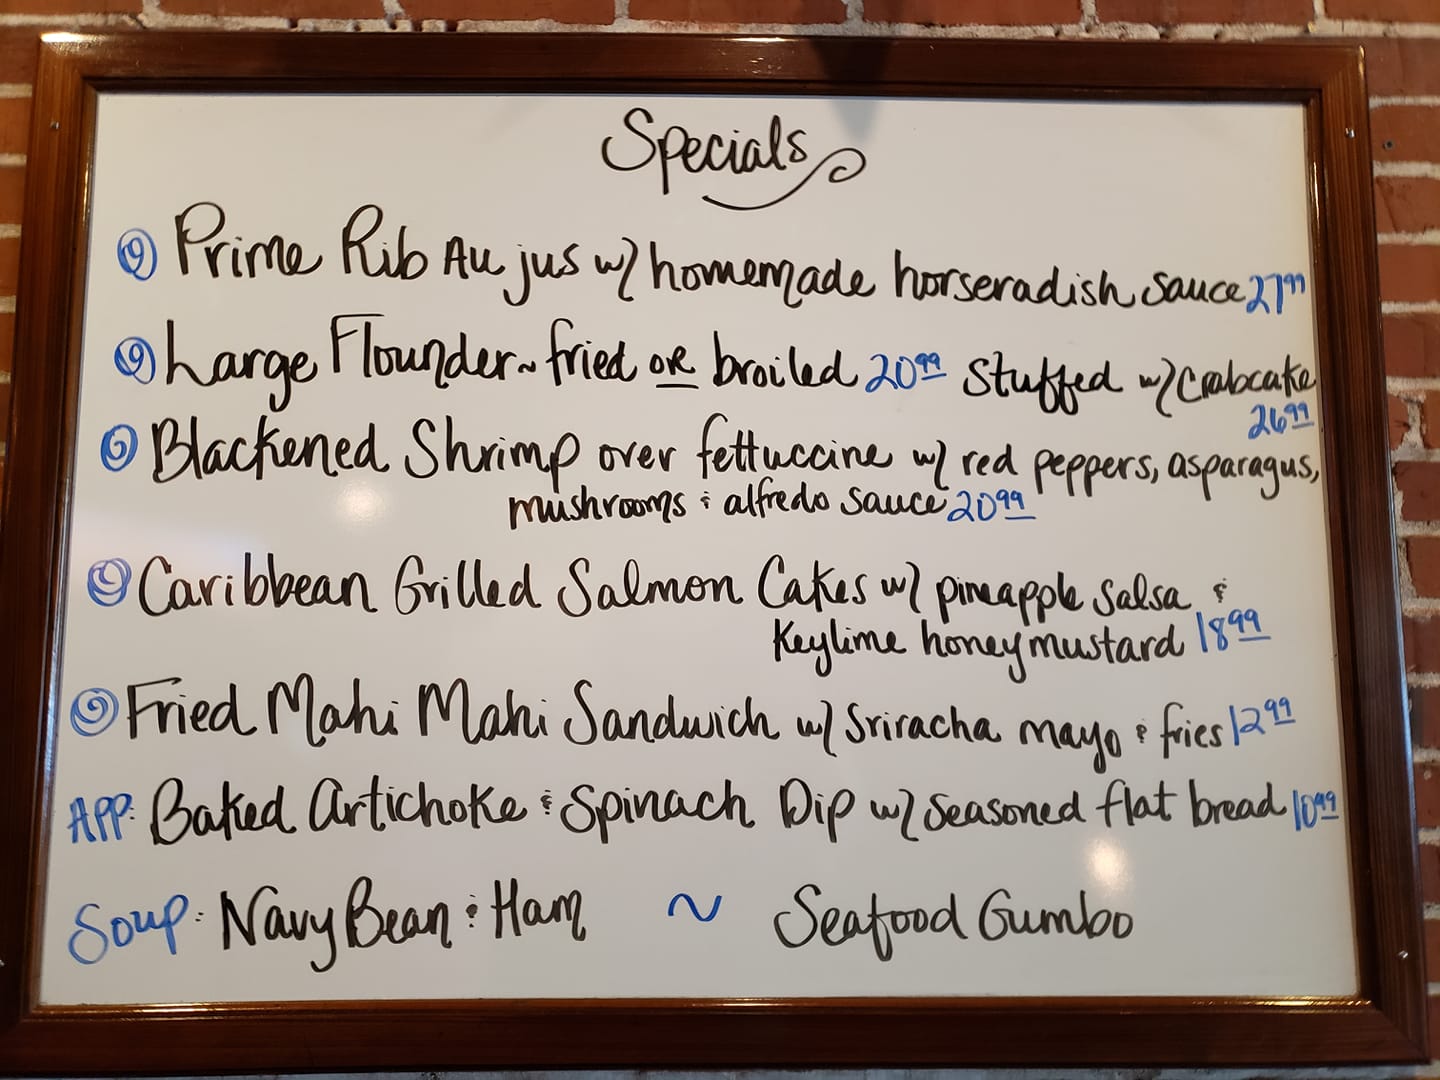 Specials
Prime Rib Au jus w/ homemade horseradish sauce 27⁹⁹
Large Flounder~ fried or broiled 20⁹⁹ Stuffed w/ Crabcake
26⁹⁹
Blackened Shrimp over fettuccine w/ red peppers, asparagus,
mushrooms & alfredo sauce 20⁹⁹
Caribbean Grilled Salmon Cakes w/ pineapple salsa &
Keylime honey mustard 18⁹⁹
Fried Mahi Mahi Sandwich w/ Sriracha mayo & fries 12⁹⁹
APP: Baked Artichoke & Spinach Dip w/ seasoned flat bread 10⁹⁹
Soup: Navy Bean & Ham ~ Seafood Gumbo